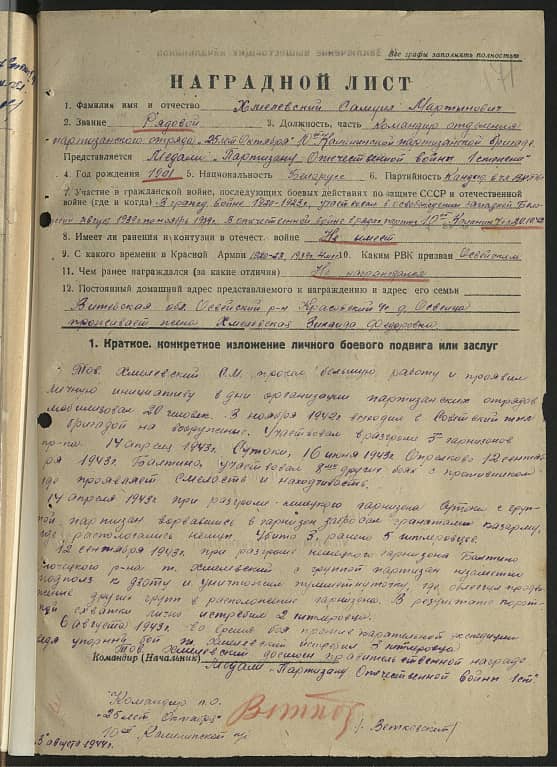 Все графы заполнять полностью
НАГРАДНОЙ ЛИСТ
1. Фамилия имя и отчество Хмелевский Мартынович
2. Звание Рядовой 3. Должность, часть Командир отделения
партизанского отряда „25 лет Октября" 10ой Калининской партизанской бригаде
Представляется Медали „Партизану Отечественной войны 1 степени"
4. Год рождения 1901 5. Национальность Беларус 6. Партийность Кандид. в чл. ВКП(б)
7. Участие в гражданской войне, последующих боевых действиях по защите СССР и отечественной
войне (где и когда) В гражд. войне 1920-1923г. участвовал в освобождении западной
1939г. ноябрь 1939г. В отечественной войне
8. Имеет ли ранения и контузии в отечест. войне Не имеет
9. С какого времени в Красной Армии 1920-23, 1939г. 10. Каким РВК призван Освейским
11. Чем ранее награждался (за какие отличия) Не награждался
12. Постоянный домашний адрес представляемого к награждению и адрес его семьи
Витебская обл. Освейский р-н д.
проживает жена Хмелевская Зинаида Федоровна
1. Краткое, конкретное изложение личного боевого подвига или заслуг
Тов. Хмелевский С.М. провел большую работу и проявил
личную инициативу в дни организации партизанских отрядов
мобилизовал 20 человек. В ноябре 1942г. выходил в Советский тыл
с бригадой на вооружение. Участвовал в разгроме 5 гарнизонов
пр-ка. 14 апреля 1943г. Сутоки, 16 июня 1943г. 12 сентяб-
ря 1943г. Балтино, участвовал 8ми других боях с противником
где проявляет смелость и находчивость.
14 апреля 1943г. при разгроме немецкого гарнизона Сутоки с груп-
пой партизан ворвавшись в гарнизон забросал гранатами казарму,
где располагались немцы. Убито 3, ранено 5 гитлеровцев.
12 сентября 1943г. при разгроме немецкого гарнизона Балтино
р-на т. Хмелевский с группой партизан незаметно
подполз к дзоту и уничтожил пулеметную точку, где облегчил продви-
жение других групп в расположение гарнизона. В результате
схватки лично истребил 2 гитлеровца.
6 августа 1943г. во время боя против карательной экспедиции
ведя упорный бой т. Хмелевский истребил 3 гитлеровца
Тов. Хмелевский достоин правительственной награде
Командир (Начальник) Медали „Партизану Отечественной войны 1 ст."
Командир п.о.
„25 лет Октября"
10ой Калининской бр. /Ветковский/
5 августа 1944г.